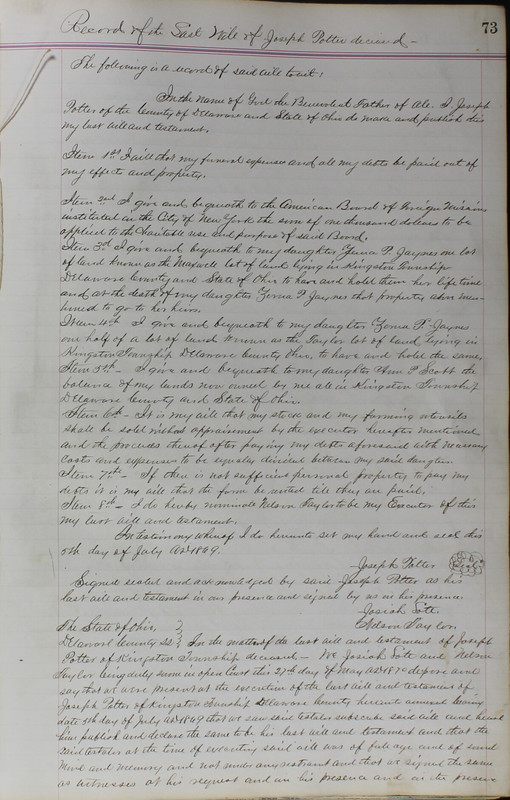 73
Record of the Last Will of Joseph Potter deceased -
The following is a record of said will to wit:
In the name of God the Benevolent Father of All. I, Joseph
Potter of the County of Delaware and State of Ohio do make and publish this
my last will and testament.
Item 1st I will that my funeral expenses and all my debts be paid out of
my effects and property.
Item 2nd I give and bequeath to the American Board of Foreign Missions
instituted in the City of New York the sum of one thousand dollars to be
applied to the Charitable use and purpose of said Board.
Item 3rd I give and bequeath to my daughter P. Jaynes one lot
of land known as the Maxwell lot of land lying in Kingston Township
Delaware County and State of Ohio to have and hold them her life time
and at the death of my daughter P. Jaynes that property above men-
tioned to go to her heirs.
Item 4th I give and bequeath to my daughter P. Jaynes
one half of a lot of land known as the Taylor lot of land lying in
Kingston Township Delaware County Ohio, to have and hold the same,
Item 5th - I give and bequeath to my daughter Ann P. Scott the
balance of my lands now owned by me all in Kingston Township
Delaware County and State of Ohio
Item 6th - It is my will that my stock and my farming utensils
shall be sold without appraisement by the executor hereafter mentioned
and the proceeds thereof after paying my debts aforesaid with necessary
costs and expenses to be equally divided between my said daughters.
Item 7th - If there is not sufficient personal property to pay my
debts it is my will that the farm be rented till they are paid.
Item 8th - I do hereby nominate Nelson Taylor to be my Executor of this
my last will and testament.
In testimony whereof I do hereunto set my hand and seal this
5th day of July AD 1869.
Joseph Potter
Signed sealed and acknowledged by said Joseph Potter as his
last will and testament in our presence and signed by us in his presence.
Josiah
Nelson Taylor.
The State of Ohio,
Delaware County SS } In the matter of the last will and testament of Joseph
Potter of Kingston Township deceased - We Josiah and Nelson
Taylor being duly sworn in open Court this 27th day of May AD 1870 depose and
say that we were present at the execution of the last will and testament of
Joseph Potter of Kingston Township Delaware County hereunto annexed bearing
date 5th day of July AD 1869 that we saw said testator subscribe said will and heard
him publish and declare the same to be his last will and testament and that the
said testator at the time of executing said will was of full age and of sound
mind and memory and not under any restraint and that we signed the same
as witnesses at his request and in his presence and in the presence